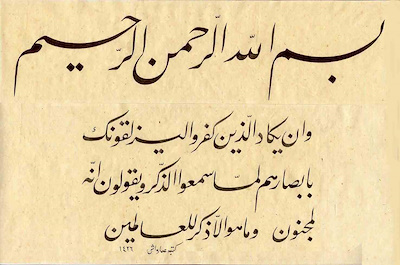 بسم الله الرّحمن الرّحیم
وان یکاد الّذین کفروا لیزلقونک
بابصارهم لمّا سمعوا الذّکر و یقولون انّه
لمجنون وما هو الاّ ذکر للعالمین
۱۴۲۶